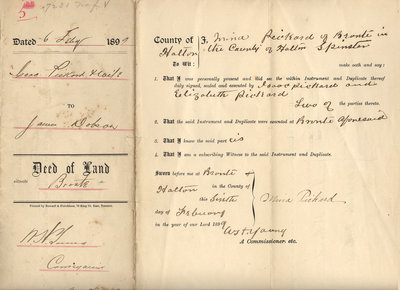 5
Dated 6 Feby 1899
Isaac Pickard & wife
TO
James Dobson
Deed of Land
situate
Bronte
Conveyancer
County of Halton
To Wit:
I, Mina Pickard of Bronte in
the County of Halton Spinster
make oath and say:
1. That I was personally present and did see the within Instrument and Duplicate thereof
duly signed, sealed and executed by Isaac Pickard and
Elizabeth Pickard
Two of the parties thereto.
2. That the said Instrument and Duplicate were executed at Bronte aforesaid
3. That I know the said parties
4. That I am a subscribing Witness to the said Instrument and Duplicate.
Sworn before me at Bronte
in the County of
Halton
this Sixth
day of February
in the year of our Lord 1899
Mina Pickard
A Commissioner, etc.